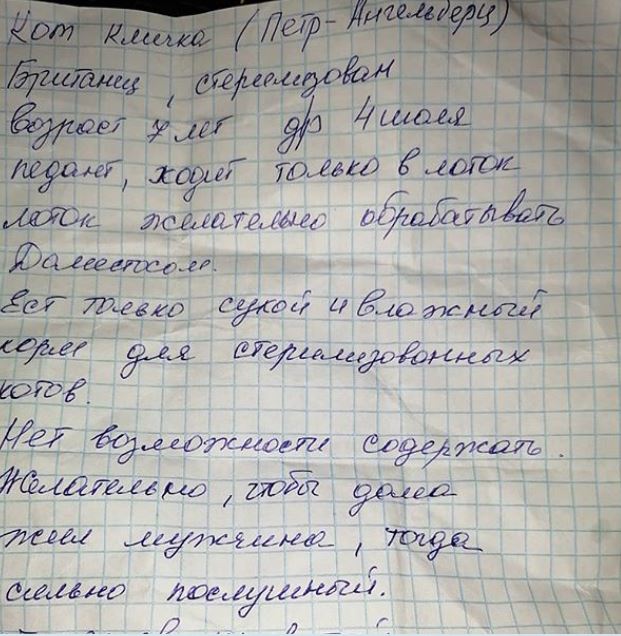 Кот кличка (Петр-Ангельберц)
Британец, стерилизован
возраст 7 лет др 4 июля
педант, ходит только в лоток
лоток желательно обрабатывать
Доместосом.
Ест только сухой и влажный
корм для стерилизованных
котов.
Нет возможности содержать.
Желательно, чтобы дома
жил мужчина, тогда
сильно послушный.